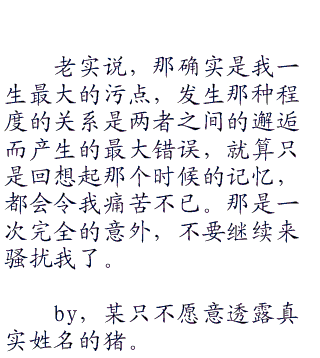 老实说，那确实是我一
生最大的污点，发生那种程
度的关系是两者之间的邂逅
而产生的最大错误，就算只
是回想起那个时候的记忆，
都会令我痛苦不已。那是一
次完全的意外，不要继续来
骚扰我了。
by，某只不愿意透露真
实姓名的猪。